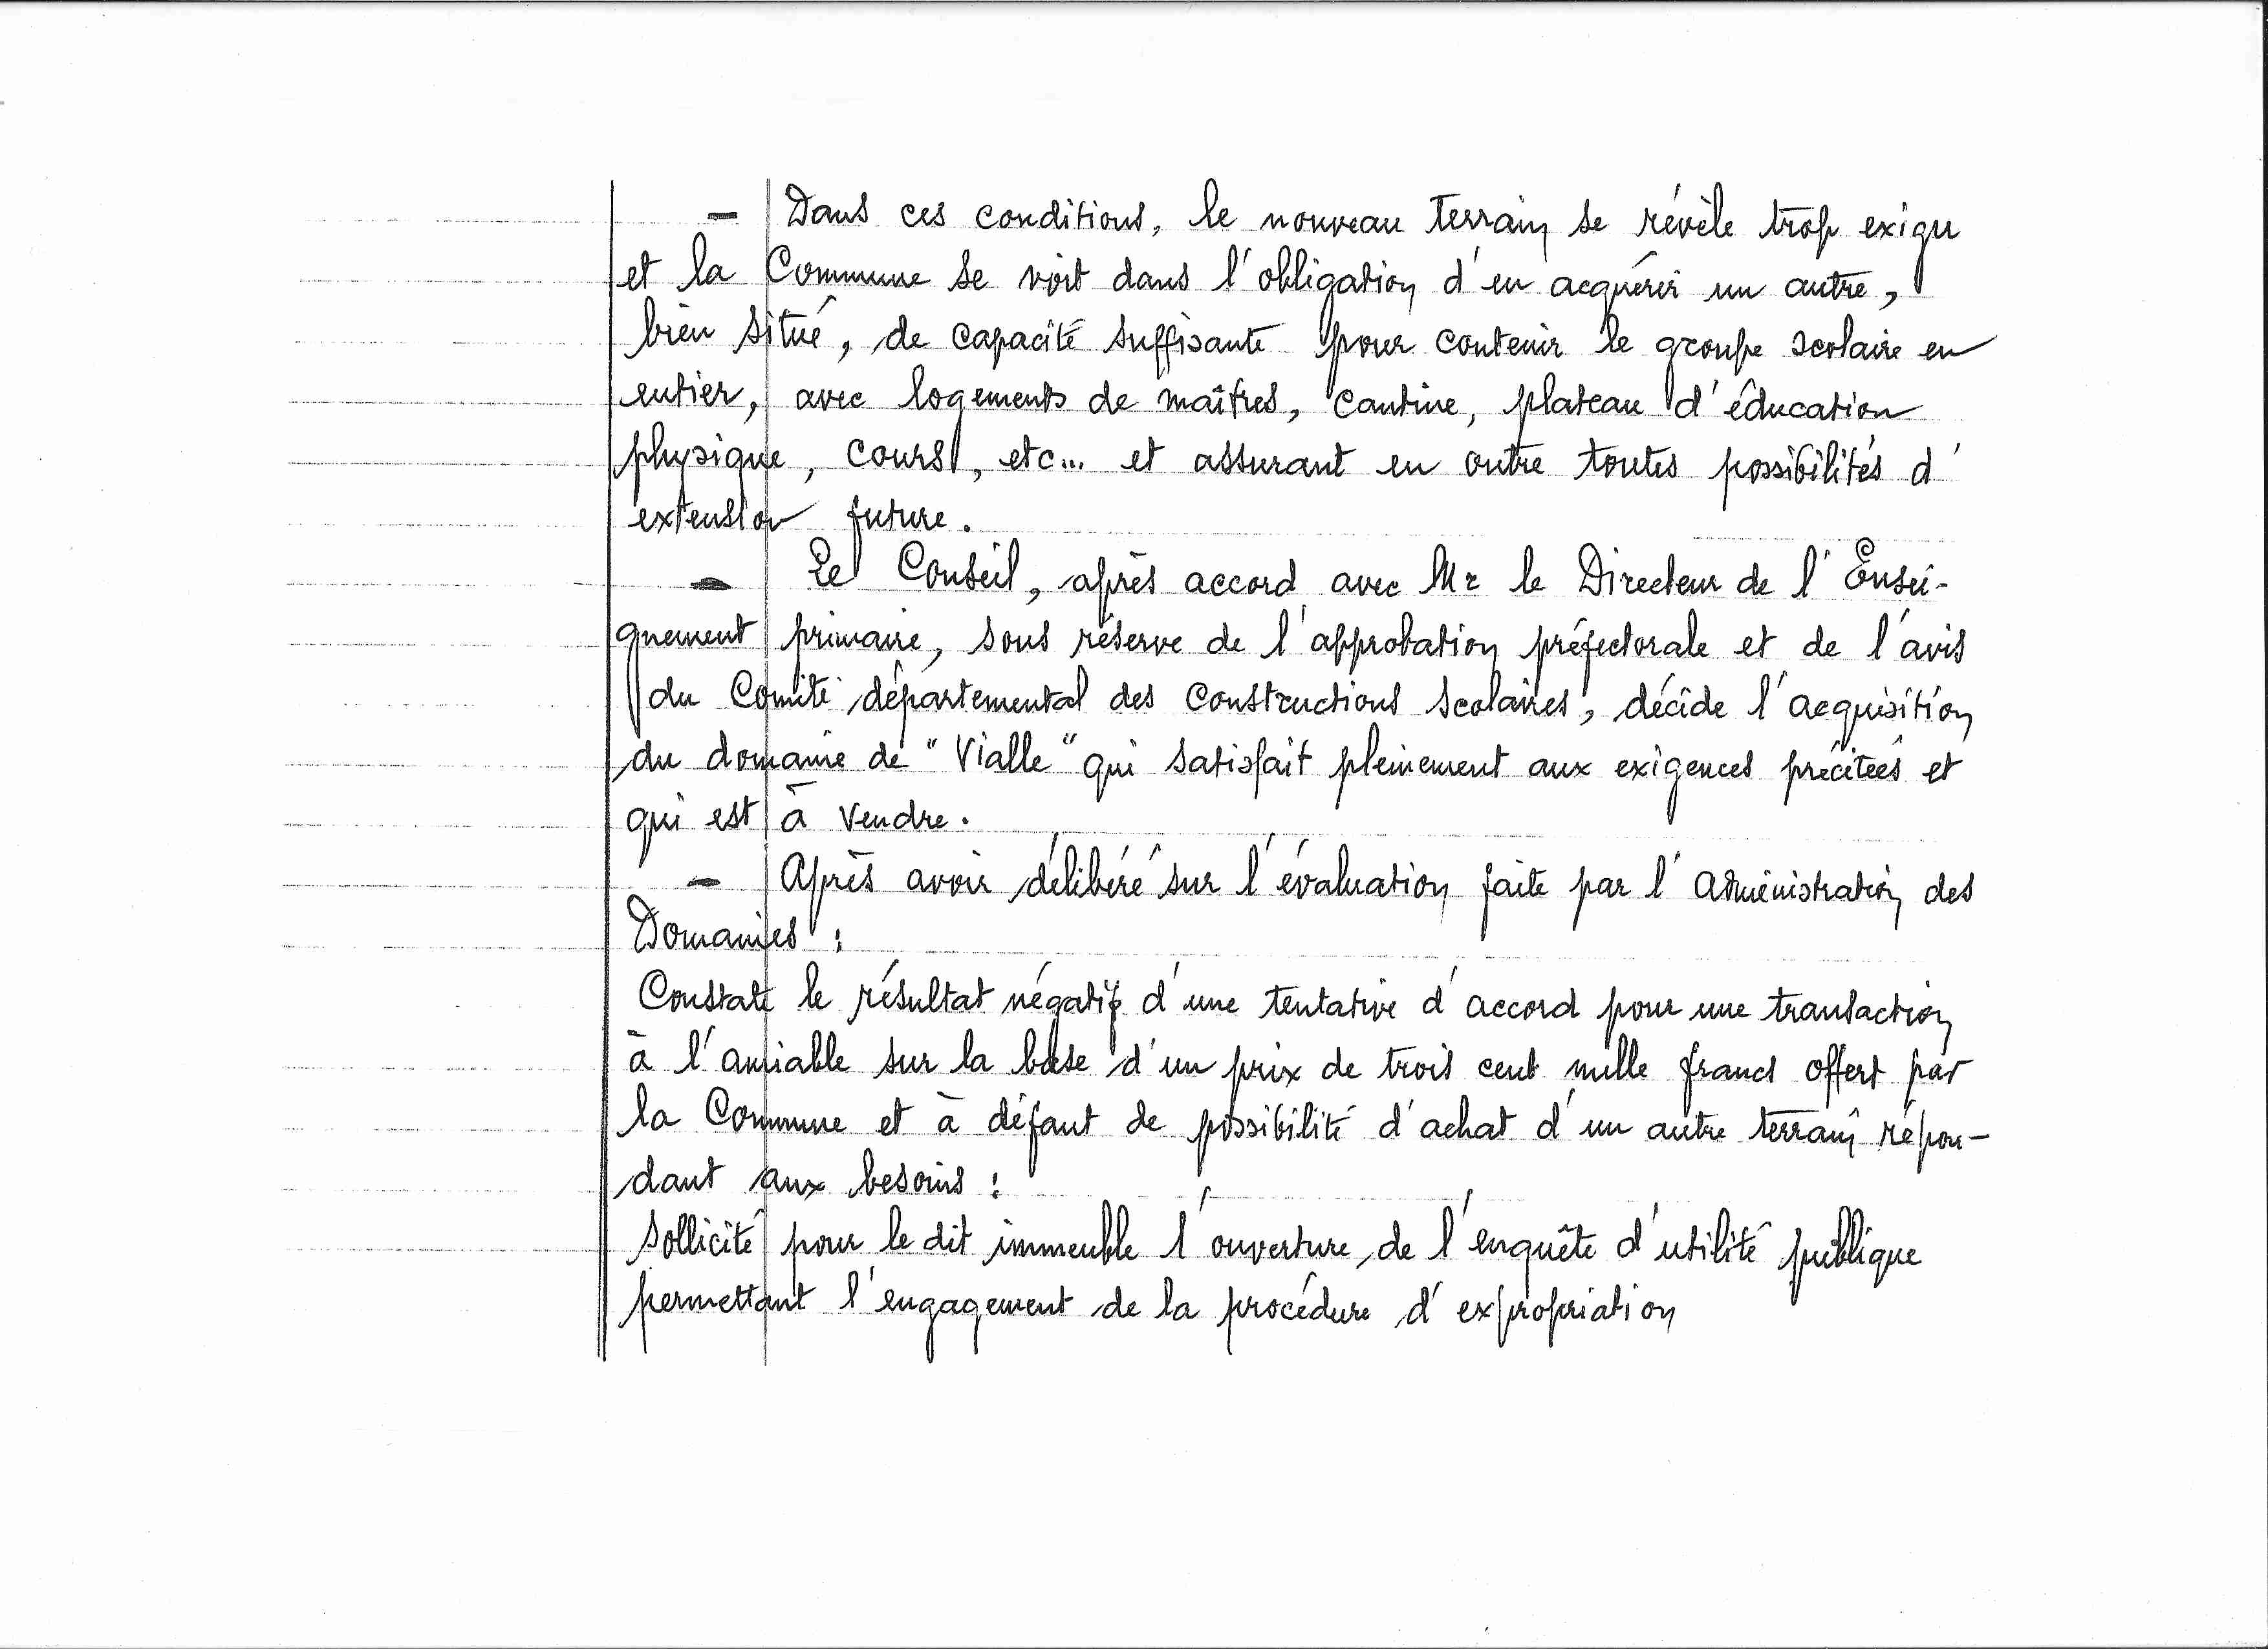 - Dans ces conditions, le nouveau terrain se révèle trop exigu
et la Commune se voit dans l'obligation d'en acquérir un autre,
bien situé, de capacité suffisante pour contenir le groupe scolaire en
entier, avec logements de maîtres, cantine, plateau d'éducation
physique, cours, etc... et assurant en outre toutes possibilités d'
extension future.
- Le Conseil, après accord avec Mr le Directeur de l'Ensei-
gnement primaire, sous réserve de l'approbation préfectorale et de l'avis
du Comité départemental des Constructions Scolaires, décide l'acquisition
du domaine de "Vialle" qui satisfait pleinement aux exigences précitées et
qui est à vendre.
- Après avoir délibéré sur l'évaluation faite par l'Administration des
Domaines :
Constate le résultat négatif d'une tentative d'accord pour une transaction
à l'amiable sur la base d'un prix de trois cent mille francs offert par
la Commune et à défaut de possibilité d'achat d'un autre terrain répon-
dant aux besoins :
Sollicite pour le dit immeuble l'ouverture de l'enquête d'utilité publique
permettant l'engagement de la procédure d'expropriation